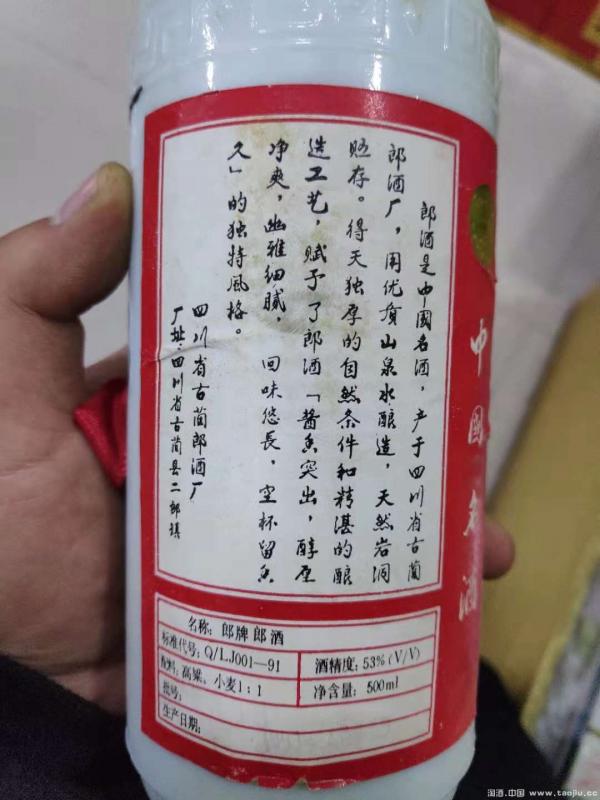 郎酒是中國名酒，产于四川省古蔺
郎酒厂，用优质山泉水酿造，天然岩洞
贮存。得天独厚的自然条件和精湛的酿
造工艺，赋予了郎酒「酱香突出，醇厚
净爽，幽雅细腻，回味悠長，空杯留香
久」的独特风格。
四川省古蔺郎酒厂
厂址：四川省古蔺县二郎镇
中國名酒
名称：郎牌郎酒
标准代号：Q/LJ001—91
酒精度：53%（V/V）
配料：高粱、小麦1：1
净含量：500ml
批号：
生产日期：
淘酒.中国 www.taojiu.cc